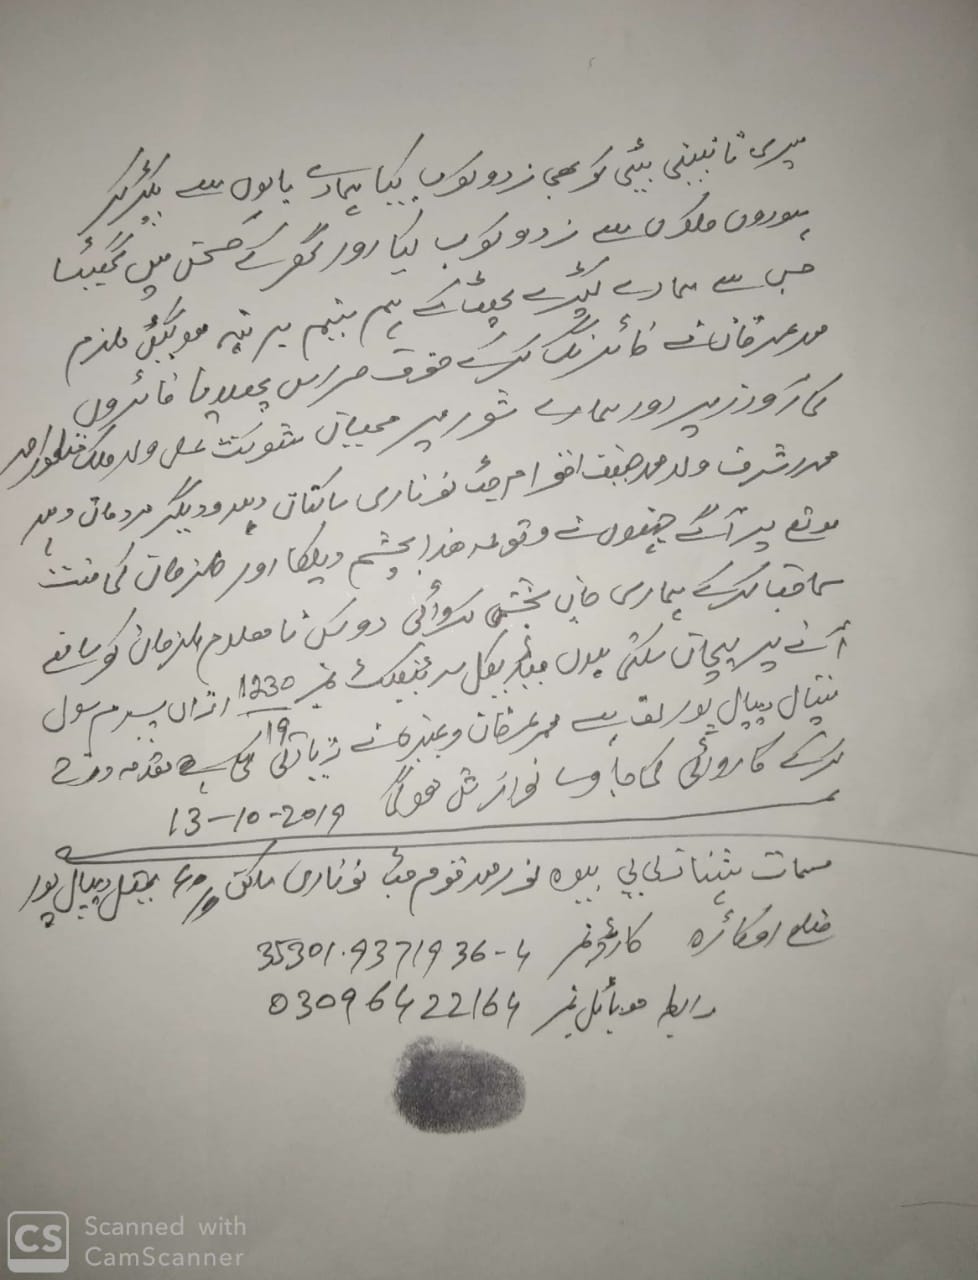 میری نا بینی بیٹی کو بھی زدوکوب کیا ہمارے بالوں سے پکڑ کر
سے زدوکوب کیا اور گھر کے صحن میں گھسیٹا
جس سے ہمارے کپڑے پھٹ گے ہم نیم برہنہ ہو گئیں ملزم
محمد عرفان نے فائرنگ کرکے خوف ہراس پھیلایا فائروں
کی آواز پر اور ہمارے شور پر مسمیان شوکت علی ولد ملک
محمد اشرف ولد محمد حنیف اقوام جٹ نوناری ساکنان دیہہ و دیگر مردمان دیہہ
موقع پر آ گے جنھوں نے وقوعہ ھذا بچشم دیکھا اور ملزمان کی منت
سماجت کرکے ہماری جان بخشی کروائی دو کس نا معلوم ملزمان کو سامنے
آنے پر پہچان سکتی ہوں میڈیکل سرٹیفکیٹ نمبر 1230/19 ازاں سول
ہسپتال دیپال پور لف ہے محمد عرفان وغیرہ نے زیادتی کی ہے مقدمہ درج
کرکے کاروائی کی جاوے نوازش ہوگی 13-10-2019
مسمات بی بی بیوہ نور محمد قوم جٹ نوناری تحصیل دیپال پور
ضلع اوکاڑہ کارڈ نمبر 35301-9371936-4
رابطہ موبائل نمبر 03096422164
CS Scanned with
CamScanner